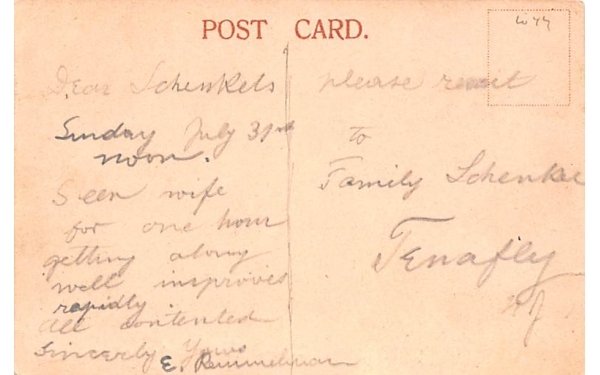 POST CARD.
Dear Schenkels
Sunday July 31st
noon.
Seen wife
for one hour
getting along
well improves
rapidly
all contented
Sincerely Yours
E.
please remit
to
Family Schenkel
Tenafly
NJ